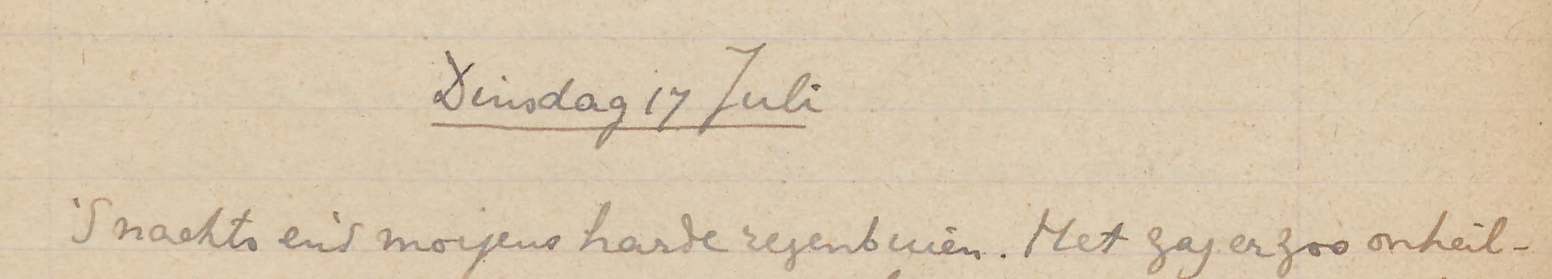 Dinsdag 17 Juli
'S nachts en 's morgens harde regenbuien. Het zag er zoo onheil-